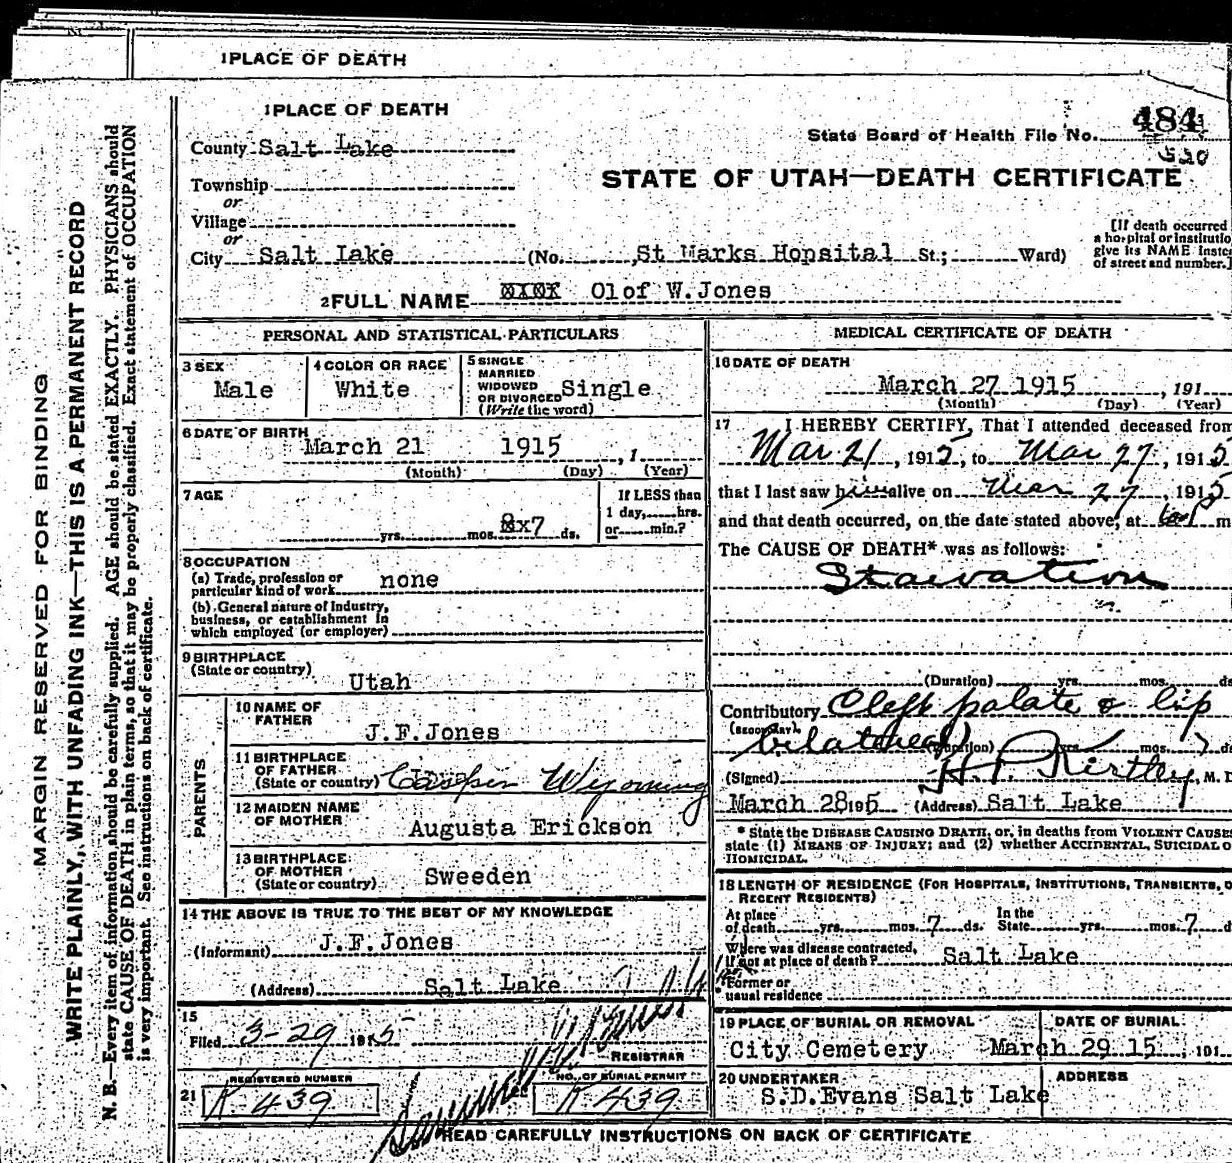 1 PLACE OF DEATH
1 PLACE OF DEATH
State Board of Health File No. 484
520
County Salt Lake
STATE OF UTAH—DEATH CERTIFICATE
Township
or
Village
or
City Salt Lake (No. , St Marks Honsital St.; Ward)
[If death occurred
a hospital or institutio
give its NAME inste
of street and number.]
2 FULL NAME Olof W. Jones
PERSONAL AND STATISTICAL PARTICULARS
3 SEX
Male
4 COLOR OR RACE
White
5 SINGLE
MARRIED
WIDOWED
OR DIVORCED Single
(Write the word)
6 DATE OF BIRTH March 21 1915 , 1
(Month) (Day) (Year)
7 AGE
yrs. mos. 8x7 ds.
If LESS than
1 day, hrs.
or min.?
8 OCCUPATION
(a) Trade, profession or
particular kind of work none
(b) General nature of Industry,
business, or establishment in
which employed (or employer)
9 BIRTHPLACE
(State or country) Utah
PARENTS
10 NAME OF
FATHER J.F.Jones
11 BIRTHPLACE
OF FATHER
(State or country) Casper Wyoming
12 MAIDEN NAME
OF MOTHER Augusta Erickson
13 BIRTHPLACE
OF MOTHER
(State or country) Sweeden
14 THE ABOVE IS TRUE TO THE BEST OF MY KNOWLEDGE
(Informant) J.F.Jones
(Address) Salt Lake
15
Filed 3-29 1915
REGISTRAR
21
REGISTERED NUMBER
K 439
NO. OF BURIAL PERMIT
K 439
MEDICAL CERTIFICATE OF DEATH
16 DATE OF DEATH
March 27 1915 , 191
(Month) (Day) (Year)
17 I HEREBY CERTIFY, That I attended deceased from
Mar 21, 1915, to Mar 27, 1915
that I last saw him alive on Mar 27, 1915
and that death occurred, on the date stated above, at m
The CAUSE OF DEATH* was as follows:
Starvation
(Duration) yrs. mos. ds
Contributory Cleft palate & lip
(SECONDARY)
bilateral (Duration) yrs. mos. 7 ds
(Signed) H.P. Kirtley, M. D
March 28 195 (Address) Salt Lake
* State the DISEASE CAUSING DEATH, or, in deaths from VIOLENT CAUSES
state (1) MEANS OF INJURY; and (2) whether ACCIDENTAL, SUICIDAL O
HOMICIDAL.
18 LENGTH OF RESIDENCE (FOR HOSPITALS, INSTITUTIONS, TRANSIENTS, O
RECENT RESIDENTS)
At place
of death yrs. mos. 7 ds.
In the
State yrs. mos. 7 d
Where was disease contracted,
if not at place of death? Salt Lake
Former or
usual residence
19 PLACE OF BURIAL OR REMOVAL
City Cemetery
DATE OF BURIAL
March 29 15 , 191
20 UNDERTAKER
S.D.Evans Salt Lake
ADDRESS
READ CAREFULLY INSTRUCTIONS ON BACK OF CERTIFICATE
MARGIN RESERVED FOR BINDING
WRITE PLAINLY, WITH UNFADING INK—THIS IS A PERMANENT RECORD
N. B.—Every item of information should be carefully supplied. AGE should be stated EXACTLY. PHYSICIANS should
state CAUSE OF DEATH in plain terms, so that it may be properly classified. Exact statement of OCCUPATION
is very important. See instructions on back of certificate.